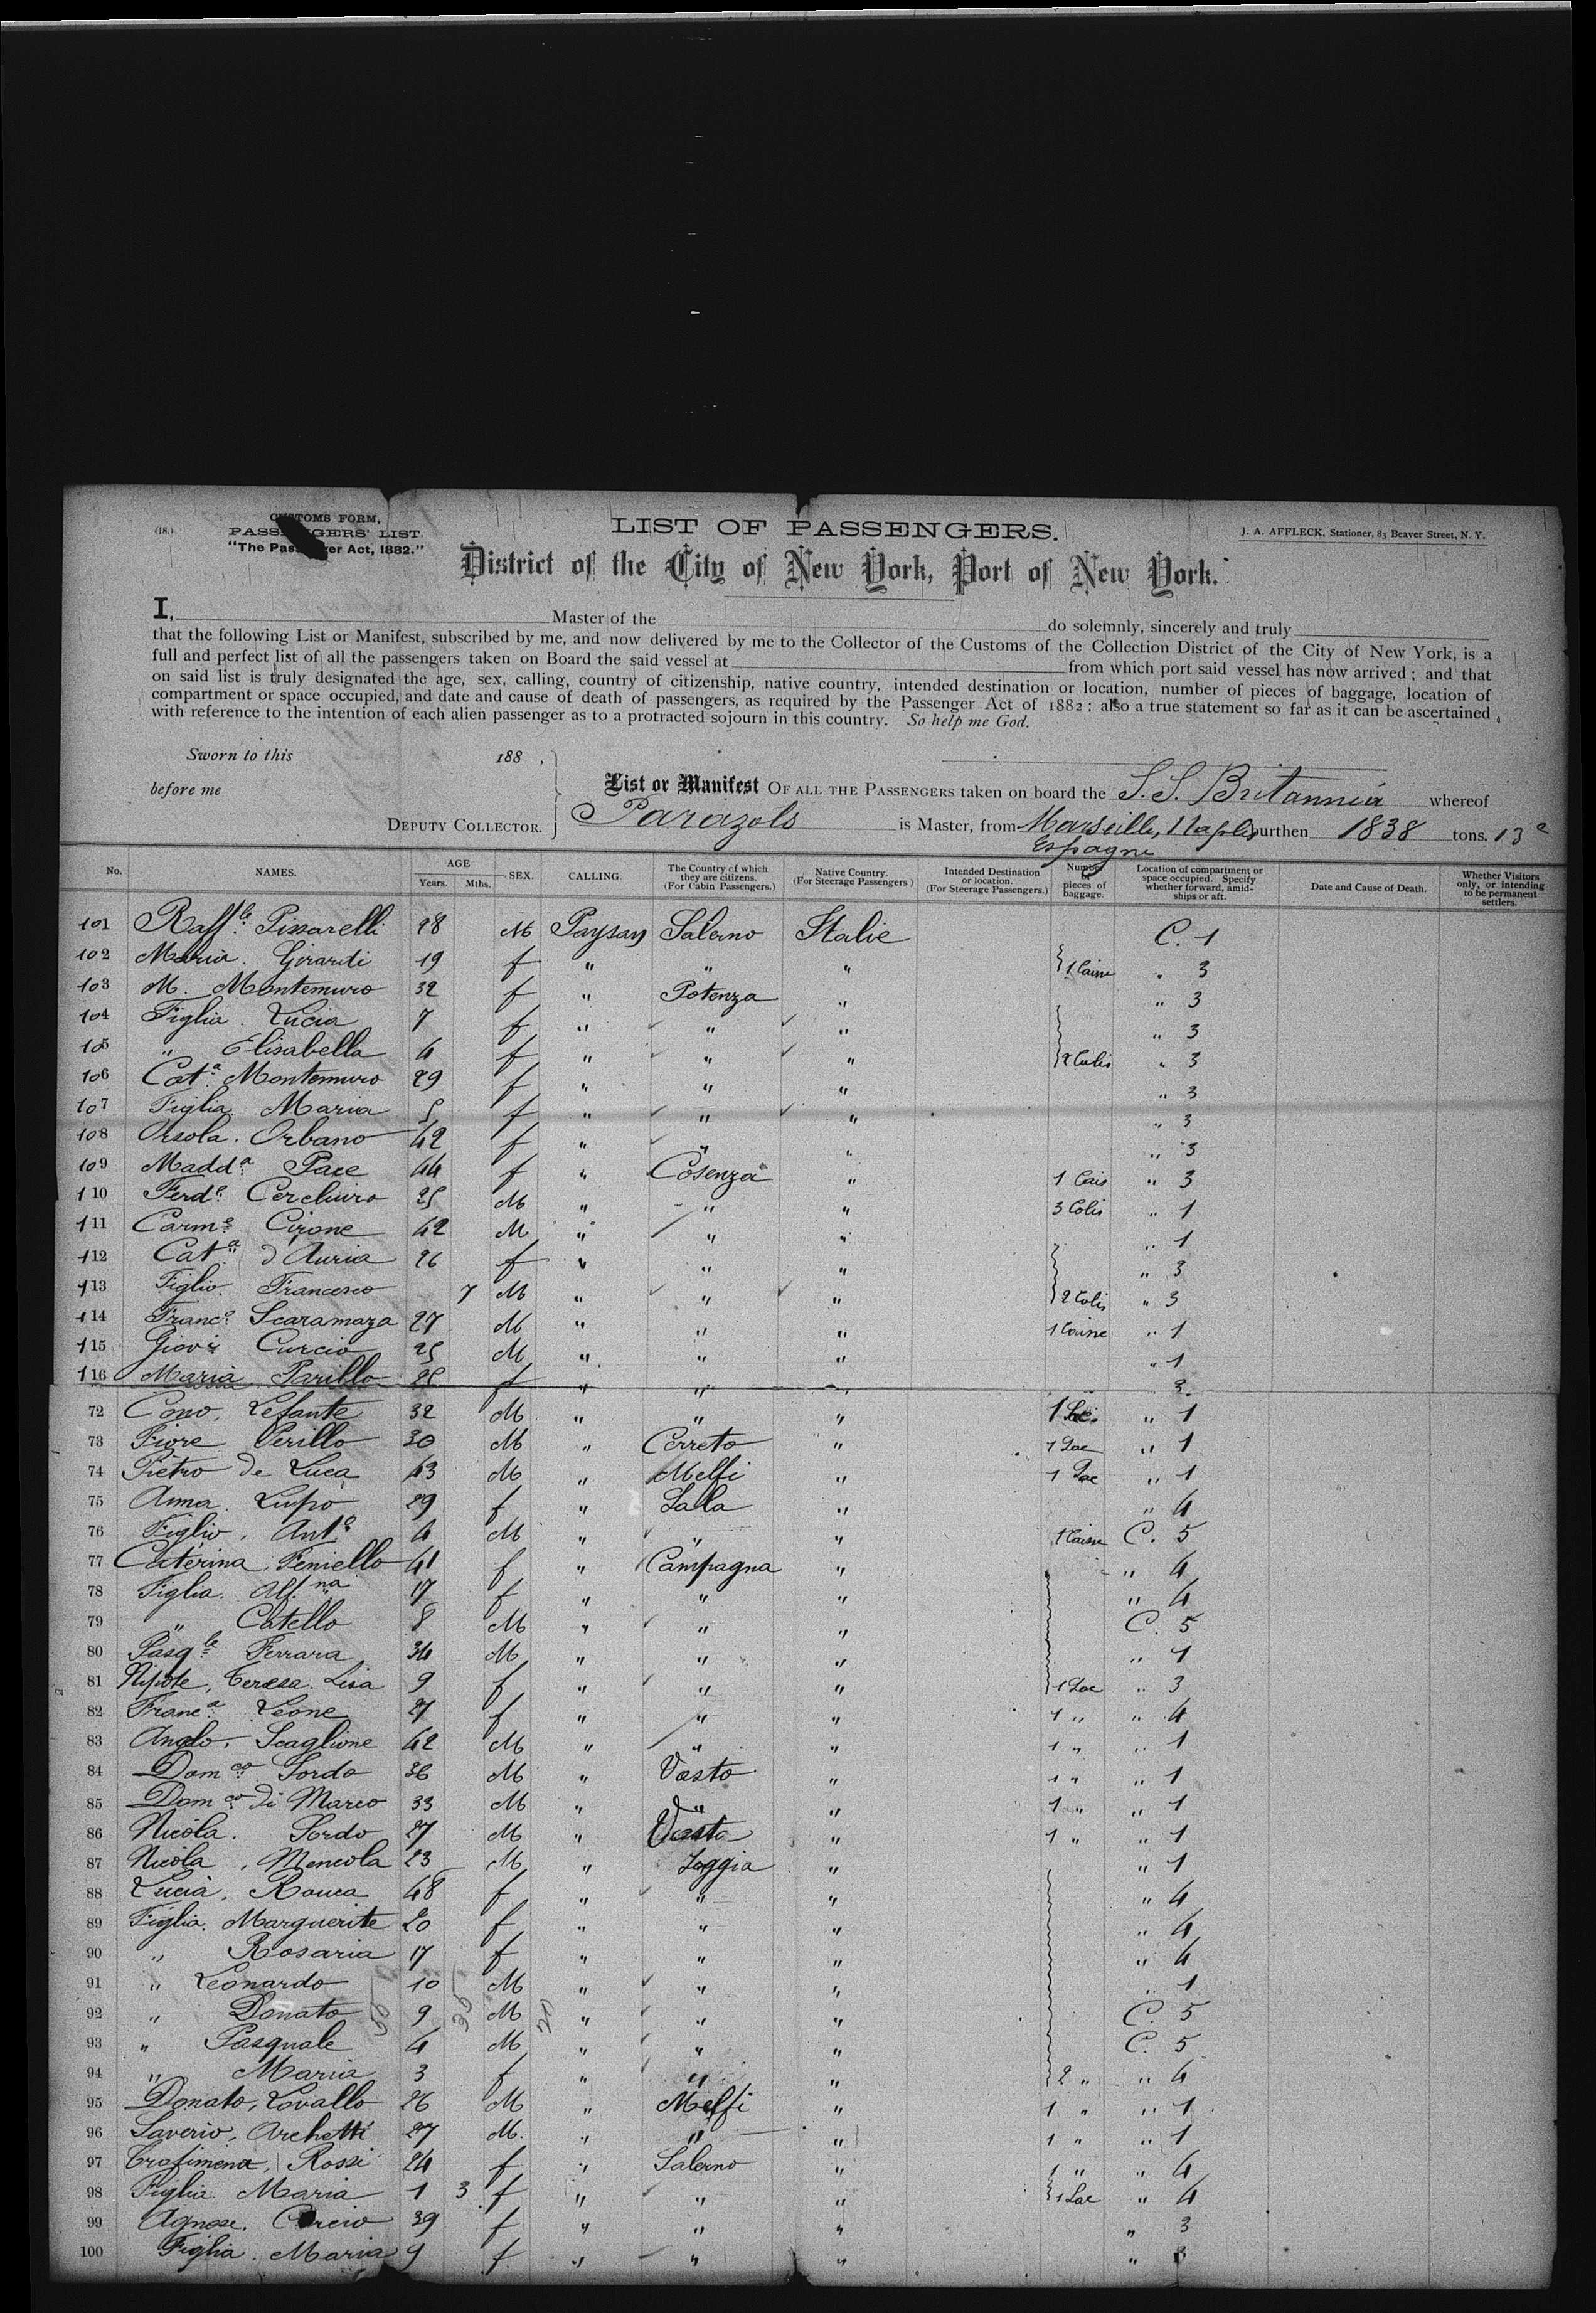 (18.)
CUSTOMS FORM,
PASSENGERS' LIST.
"The Passenger Act, 1882."
LIST OF PASSENGERS.
J. A. AFFLECK, Stationer, 83 Beaver Street, N. Y.
District of the City of New York, Port of New York.
I, Master of the do solemnly, sincerely and truly
that the following List or Manifest, subscribed by me, and now delivered by me to the Collector of the Customs of the Collection District of the City of New York, is a
full and perfect list of all the passengers taken on Board the said vessel at from which port said vessel has now arrived; and that
on said list is truly designated the age, sex, calling, country of citizenship, native country, intended destination or location, number of pieces of baggage, location of
compartment or space occupied, and date and cause of death of passengers, as required by the Passenger Act of 1882; also a true statement so far as it can be ascertained
with reference to the intention of each alien passenger as to a protracted sojourn in this country. So help me God.
Sworn to this 188 ,
before me
DEPUTY COLLECTOR.
List or Manifest OF ALL THE PASSENGERS taken on board the S.S. Britannia whereof
Parazols is Master, from Marseille, Naples burthen 1838 tons.
Espagne
No. NAMES. AGE Years. Mths. SEX. CALLING. The Country of which they are citizens. (For Cabin Passengers.) Native Country. (For Steerage Passengers) Intended Destination or location. (For Steerage Passengers.) Number of pieces of baggage. Location of compartment or space occupied. Specify whether forward, amidships or aft. Date and Cause of Death. Whether Visitors only, or intending to be permanent settlers.
101 Raff.le Pissarelli 28 M Paysan Salerno Italie C. 1
102 Maria. Girardi 19 f " " " 1 Caisse " 3
103 M. Montemuro 32 f " Potenza " " 3
104 Figlia. Lucia 7 f " " " " 3
105 " Elisabella 4 f " " " 2 Colis " 3
106 Cat.a Montemuro 29 f " " " " 3
107 Figlia Maria 5 f " " " " 3
108 Orsola. Orbano 42 f " " " " 3
109 Madd.a Pace 44 f " Cosenza " 1 Cais " 3
110 Ferd.o Cerchiaro 25 M " " " 3 Colis " 1
111 Carm.e Cirone 42 M " " " " 1
112 Cat.a d'Auria 26 f " " " " 3
113 Figlio. Francesco 7 M " " " 2 Colis " 3
114 Franc.o Scaramaza 27 M " " " 1 Caisse " 1
115 Giov.i Curcio 25 M " " " " 1
116 Maria Parillo 25 f " " " 3
72 Cono. Lefante 32 M " " " 1 Sac " 1
73 Fiore Perillo 30 M " Cerreto " 1 Sac " 1
74 Pietro de Luca 43 M " Melfi " 1 Sac " 1
75 Anna. Lupo 29 f " Salla " " 4
76 Figlio. Ant.o 4 M " " " 1 Caisse C. 5
77 Caterina Feniello 41 f " Campagna " " 4
78 Figlia. Alf.na 17 f " " " " 4
79 " Catello 8 M " " " C. 5
80 Pasq.le Ferrara 34 M " " " " 1
81 Nipote, Teresa Lisa 9 f " " " 1 Sac " 3
82 Franc.a Leone 27 f " " " 1 " " 4
83 Anglo. Scaglione 42 M " " " 1 " " 1
84 Dom.co Sordo 36 M " Vasto " 1 " " 1
85 Dom.co di Marco 33 M " " " 1 " " 1
86 Nicola. Sordo 27 M " Vasto " 1 " " 1
87 Nicola, Mencola 23 M " Foggia " " 1
88 Lucia, Rouca 48 f " " " " 4
89 Figlia. Marguerite 20 f " " " " 4
90 " Rosaria 17 f " " " " 4
91 " Leonardo 10 M " " " " 1
92 " Donato 9 M " " " C. 5
93 " Pasquale 4 M " " " C. 5
94 " Maria 3 f " " " 2 " " 4
95 Donato, Lovallo 26 M " Melfi " 1 " " 1
96 Saverio, Archetti 27 M. " " " 1 " " 1
97 Trofimena, Rossi 24 f " Salerno " 1 " " 4
98 Figlia Maria 1 3 f " " " 1 Sac " 4
99 Agnese. 39 f " " " " 3
100 Figlia. Maria 9 f " " " " 3